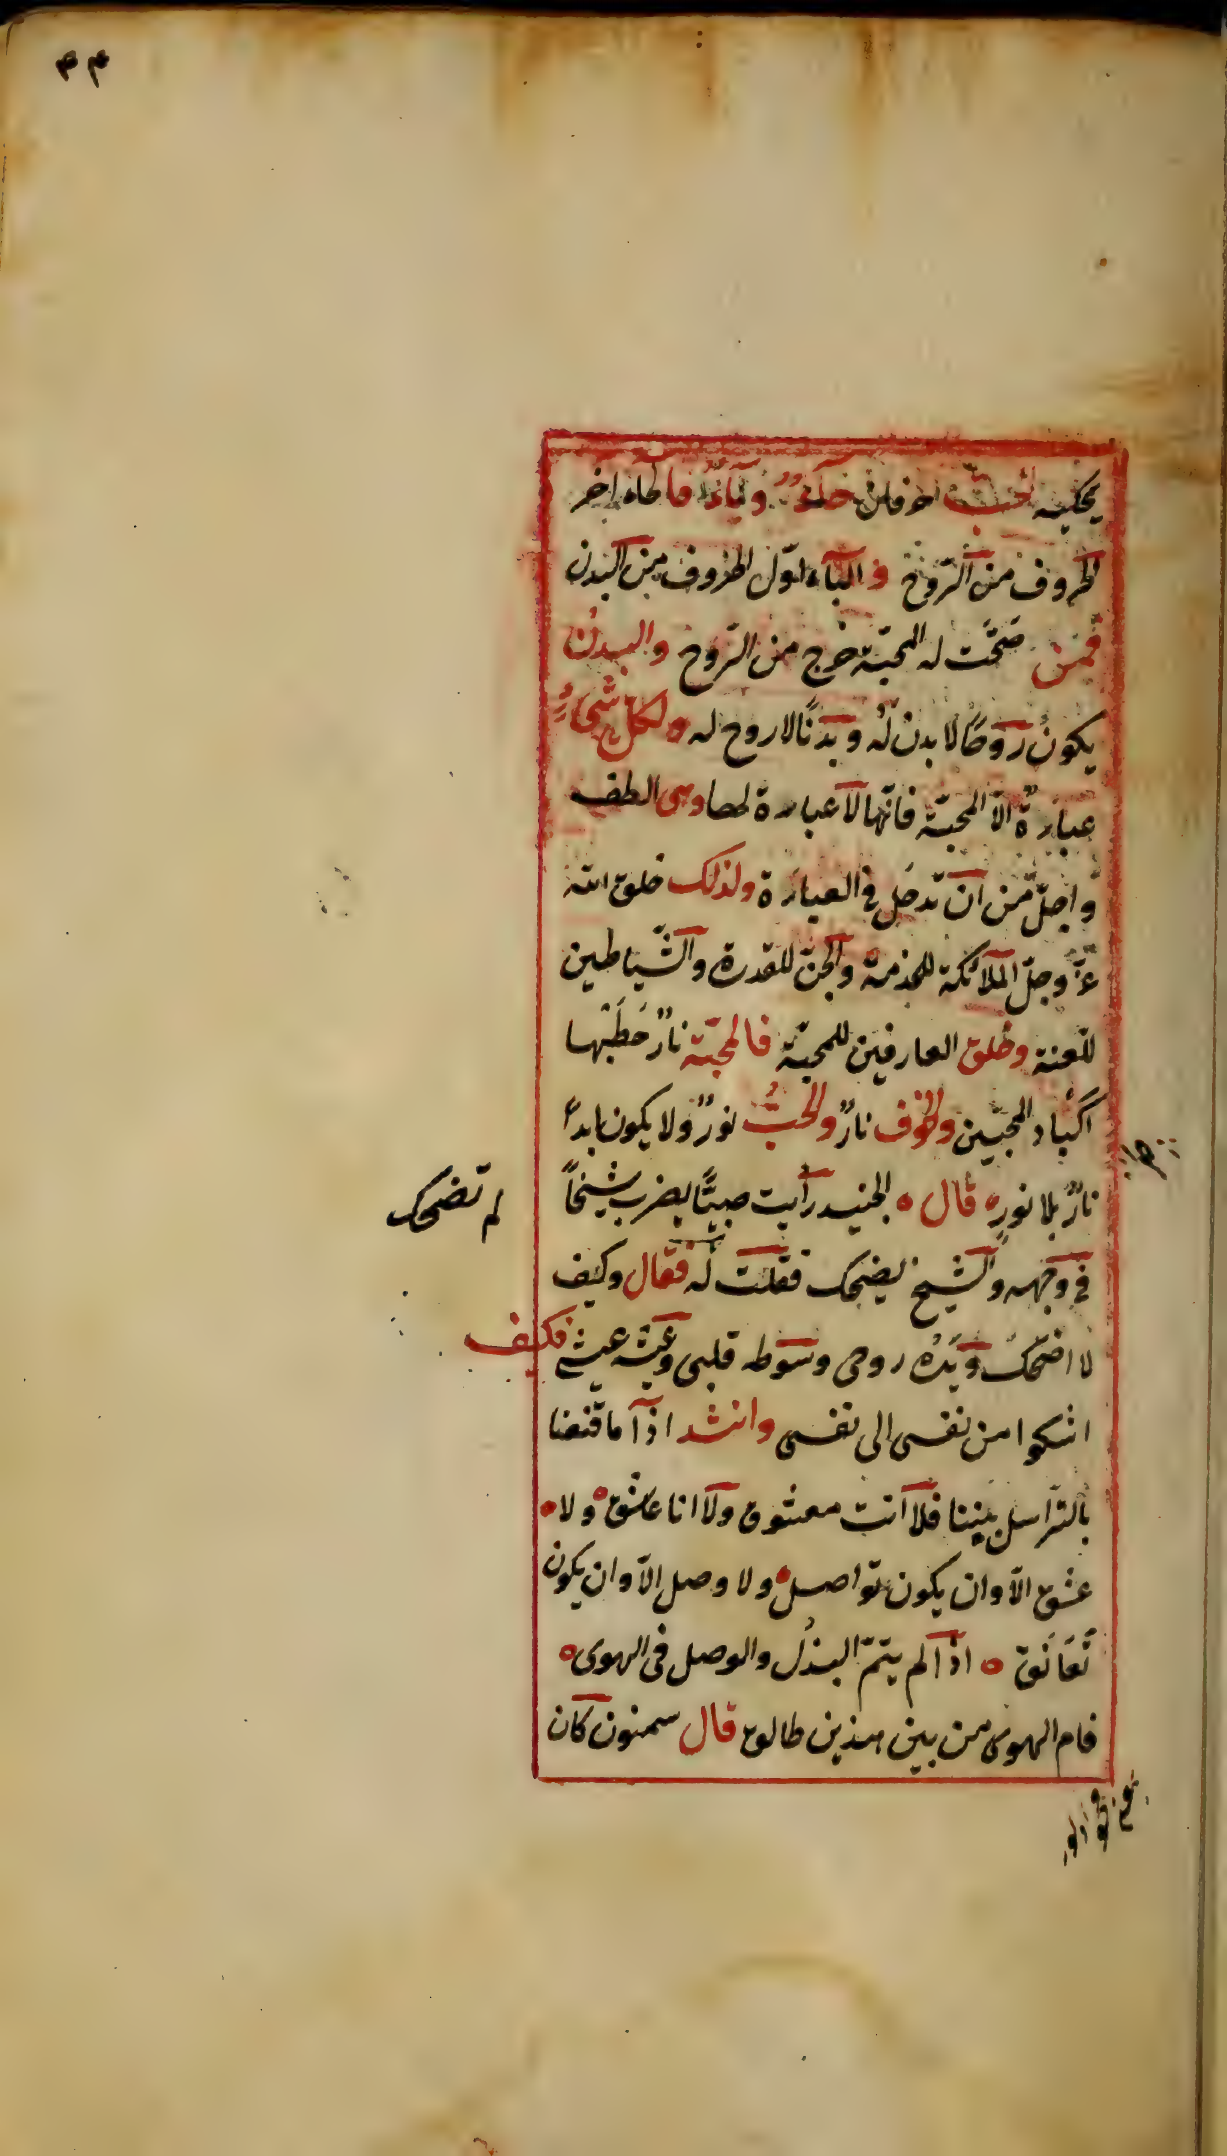 ٣٣
الحبّ حرفان حآءٌ وبآءٌ فالحاء آخر
الحروف من الرّوح والبآء اوّل الحروف من البدن
فمن صحّت له المحبّة خرج من الرّوح والبدن
يكون روحًا لا بدن لهُ وبدنًا لا روح له ولكلّ شىءٍ
عبارةٌ الّا المحبّة فانّها لا عبارة لها وهى الطف
واجلّ من ان تدخل فى العبارة ولذلك خلق الله
عزّ وجلّ الملآئكة للخدمة والجنّ للقدرة والشّياطين
للّعنة وخلق العارفين للمحبّة فالمحبّة نارٌ حَطَبُها
اكباد المحبّين والخوف نارٌ والحبُّ نورٌ ولا يكون ابدًا
نارٌ بلا نورٍ قال الجنيد رأيت صبيًّا يضرب شيخًا
فى وجهه والشيخ يضحك فقلت له فقال وكيف
لم تضحك
لا اضحك ويدُه روحى وسوطه قلبى وعيشه عيشى فكيف
اشكوا من نفسى الى نفسى وانشد اذا ما قنعنا
بالتّراسل بيننا فلا انت معشوق ولا انا عاشق ولا
عشق الّا وان يكون تواصل ولا وصل الّا وان يكون
تعانق اذا لم يتمّ البذل والوصل فى الهوى
فام الهوى من بين هذين طالق قال سمنون كان